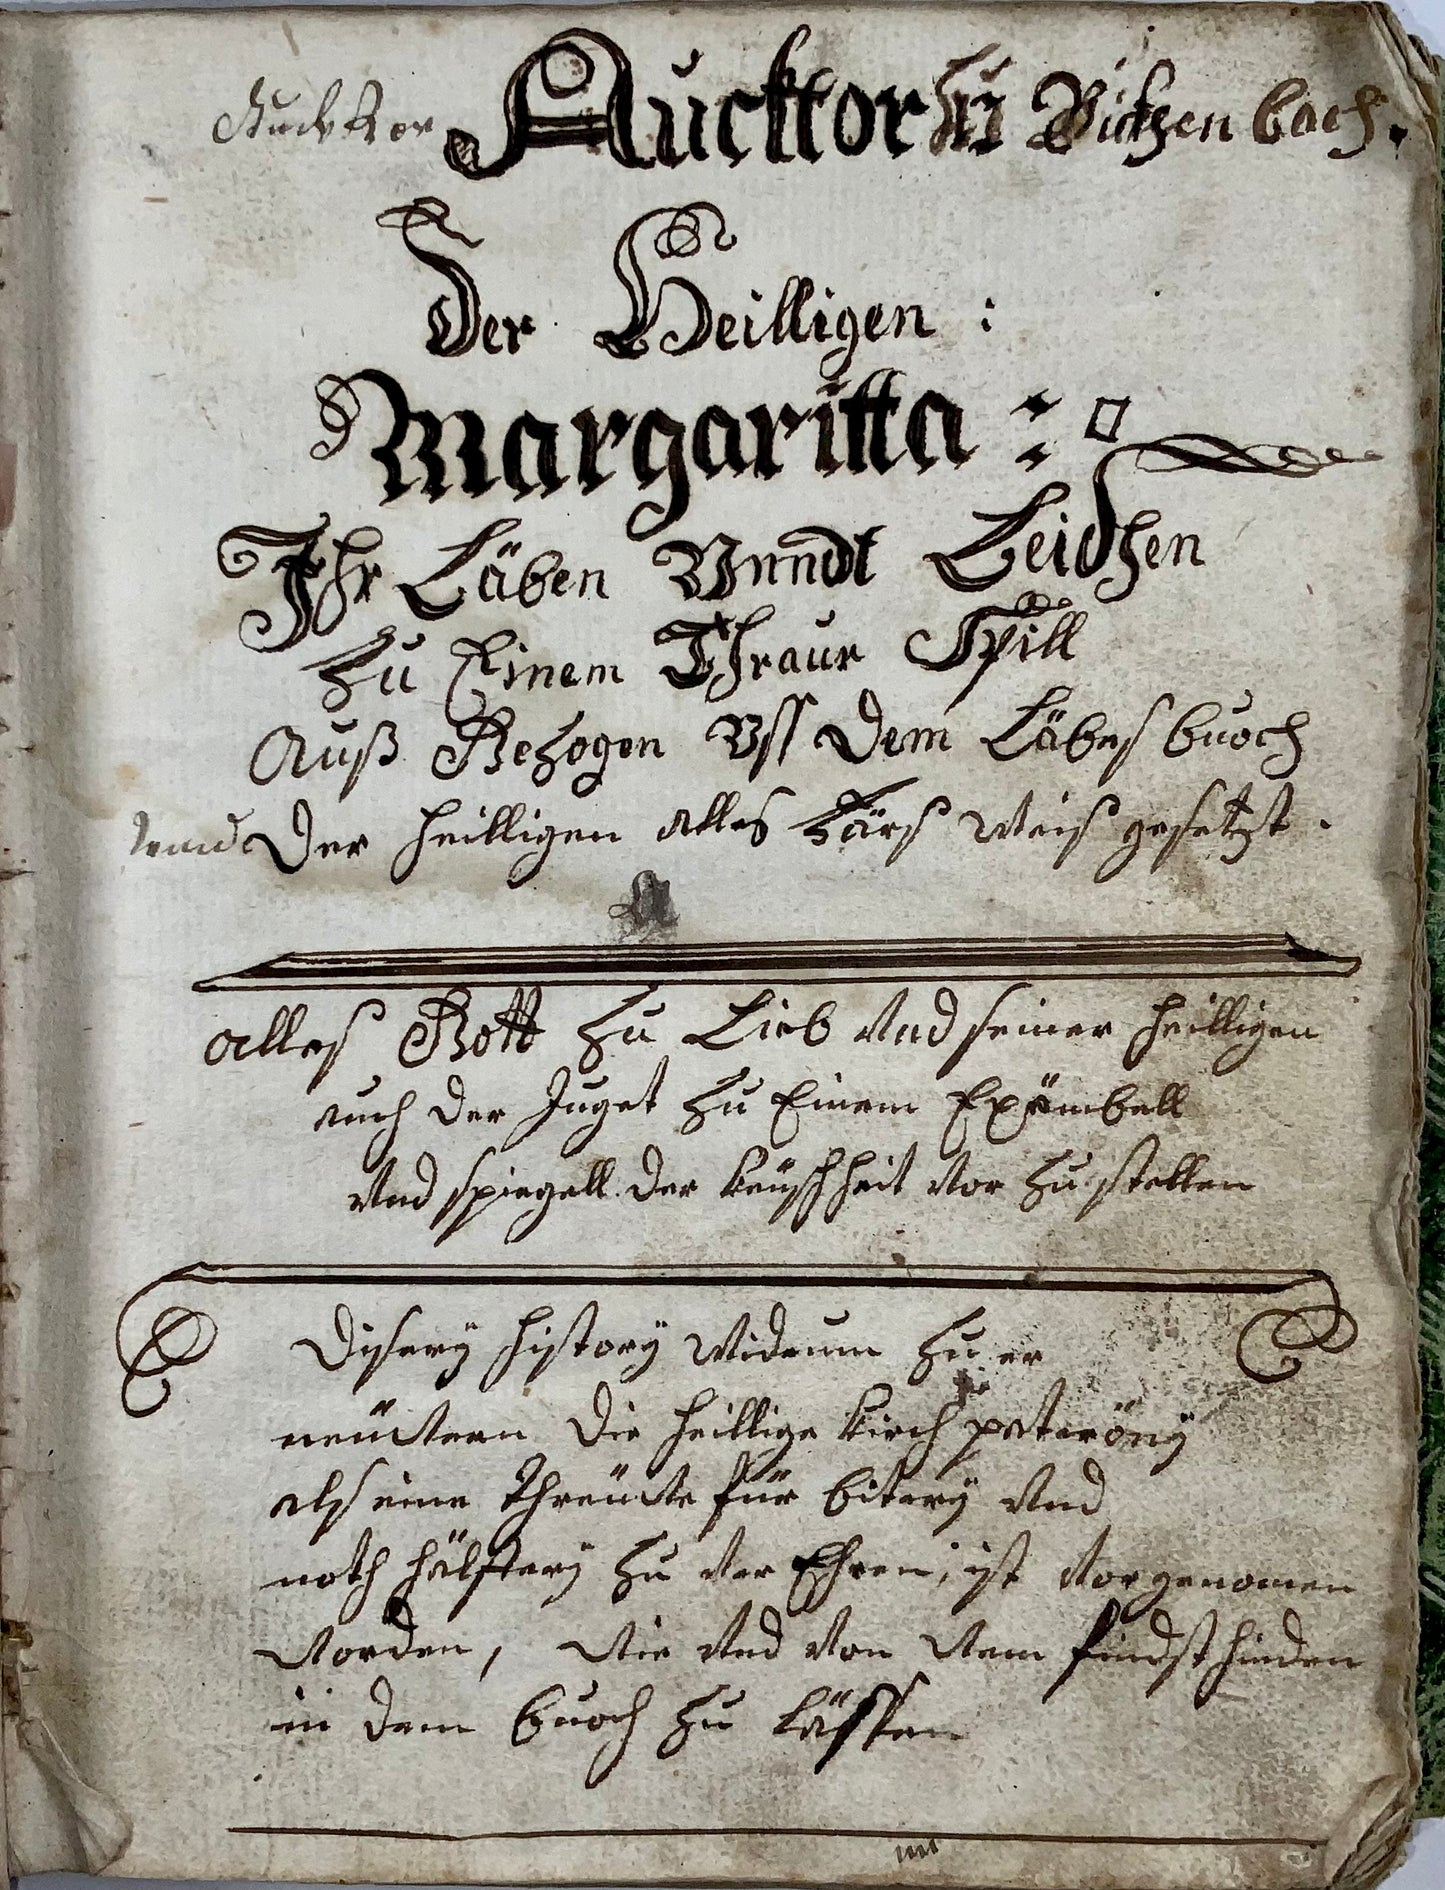 Auckttor Auckttor zu Bickenbach.
Der Heilligen :
Margaritta :
Jhr Läben Vnndt Leidhen
Zu Einem Thraur Spill
Auß Gezogen Vss Dem Läbes buoch
vnnd Der heilligen alles värs weis gesetzt .
alles Gott zu Lieb vnd seiner heilligen
auch der Juget zu Einem Exämbell
vnd spiegell der keüschheit vor zu stellen
Disery history widrum zu er
neüwtern die heillige kirch pateröny
als eine threüwte für bitery vnd
noth hälffery zu ver Ehren, ist vorgenomen
worden, wie vnd von wem findst hinden
in dem buoch zu lässen